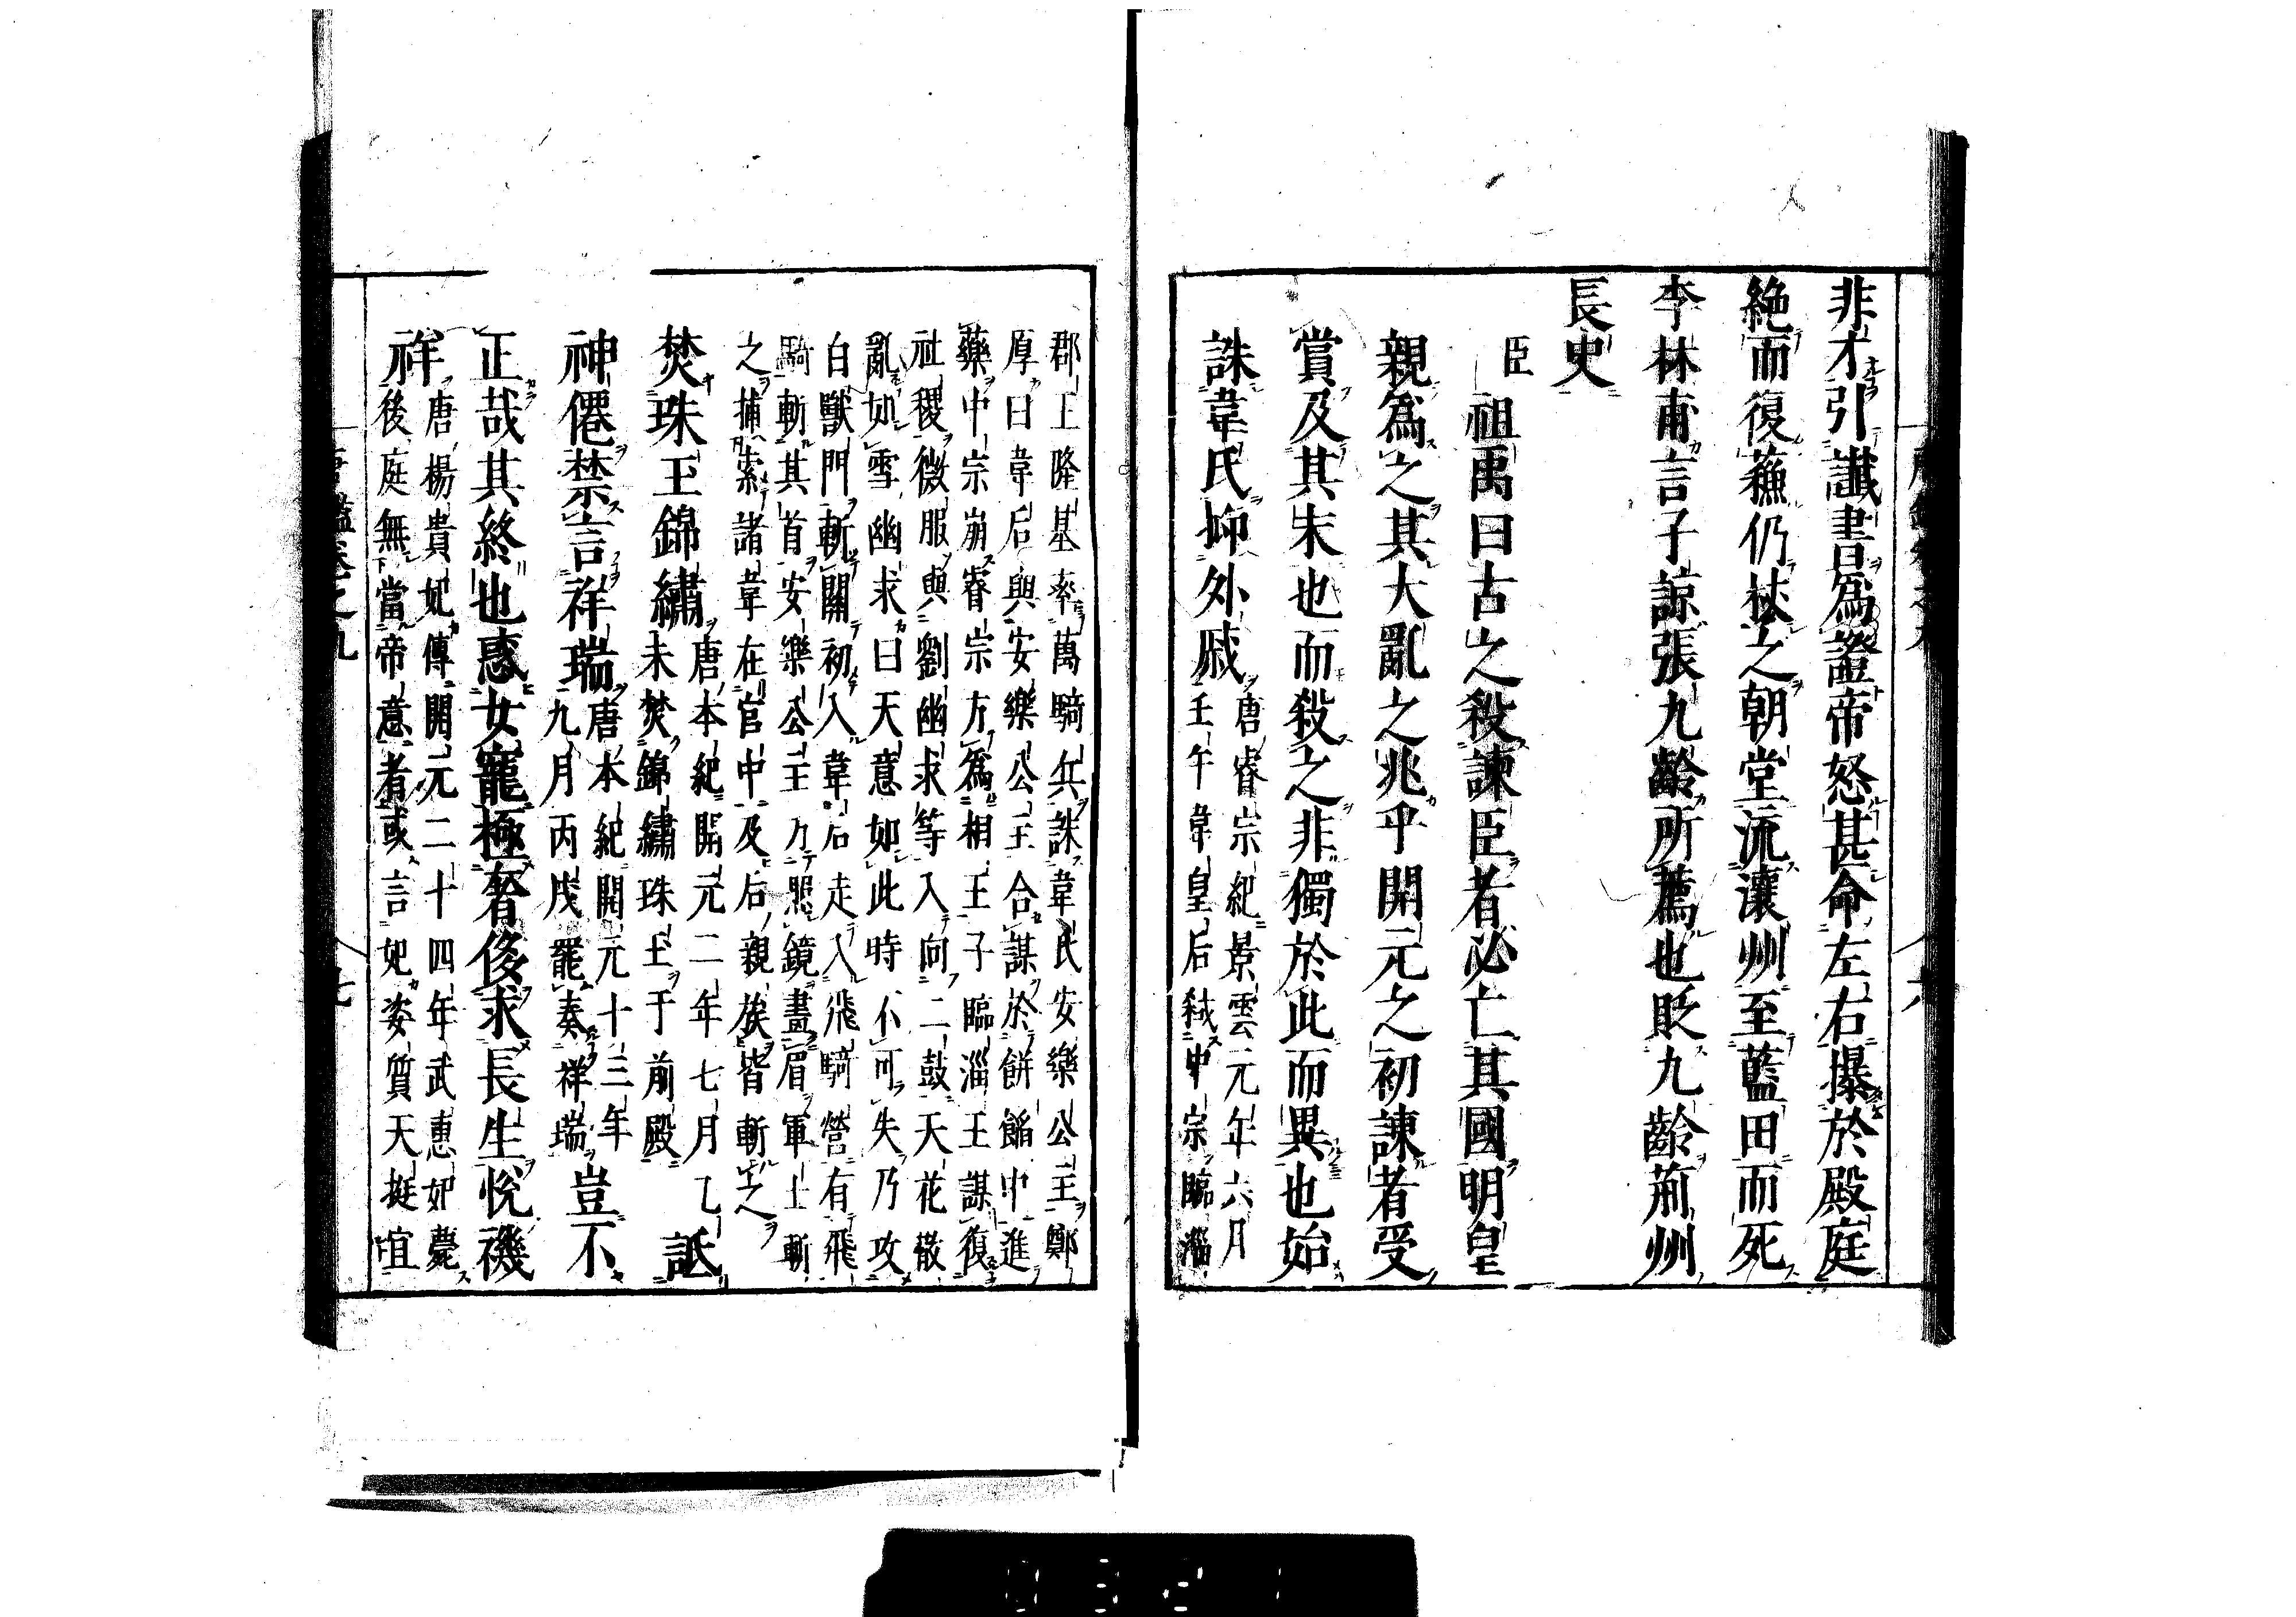 非才引讖書爲證帝怒甚命左右㩧於殿庭
絶而復蘇仍杖之朝堂流瀼州至藍田而死
李林甫言子諒張九齡所薦也貶九齡荊州
長史
臣祖禹曰古之殺諫臣者必亡其國明皇
親爲之其大亂之兆乎開元之初諫者受
賞及其末也而殺之非獨於此而異也始
誅韋氏抑外戚
唐睿宗紀景雲元年六月
壬午韋皇后弑中宗臨淄
郡王隆基率萬騎兵誅韋氏安樂公主鄭
厚曰韋后與安樂公主合謀於餅餡中進
藥中宗崩睿宗方爲相王子臨淄王謀復
社稷微服與劉幽求等入向二鼓天花散
亂如雪幽求曰天意如此時不可失乃攻
白獸門斬關初入韋后走入飛騎營有飛
騎斬其首安樂公主乃照鏡畫眉軍士斬
之捕索諸韋在官中及后親族皆斬之
焚珠玉錦繡
唐本紀開元二年七月乙
未焚錦繡珠玉于前殿
詆
神僊禁言祥瑞
唐本紀開元十三年
九月丙戌罷奏祥瑞
豈不
正哉其終也惑女寵極奢侈求長生悅禨
祥
唐楊貴妃傳開元二十四年武惠妃薨
後庭無當帝意者或言妃姿質天挺宜
唐鑑卷之九
七
六